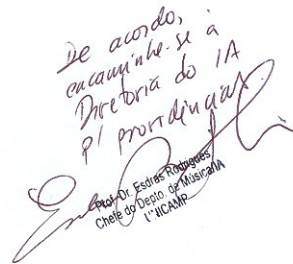 De acordo,
encaminhe-se à
Diretoria do IA
p/ providências
Prof. Dr. Esdras Rodrigues
Chefe do Depto. de Música/IA
UNICAMP